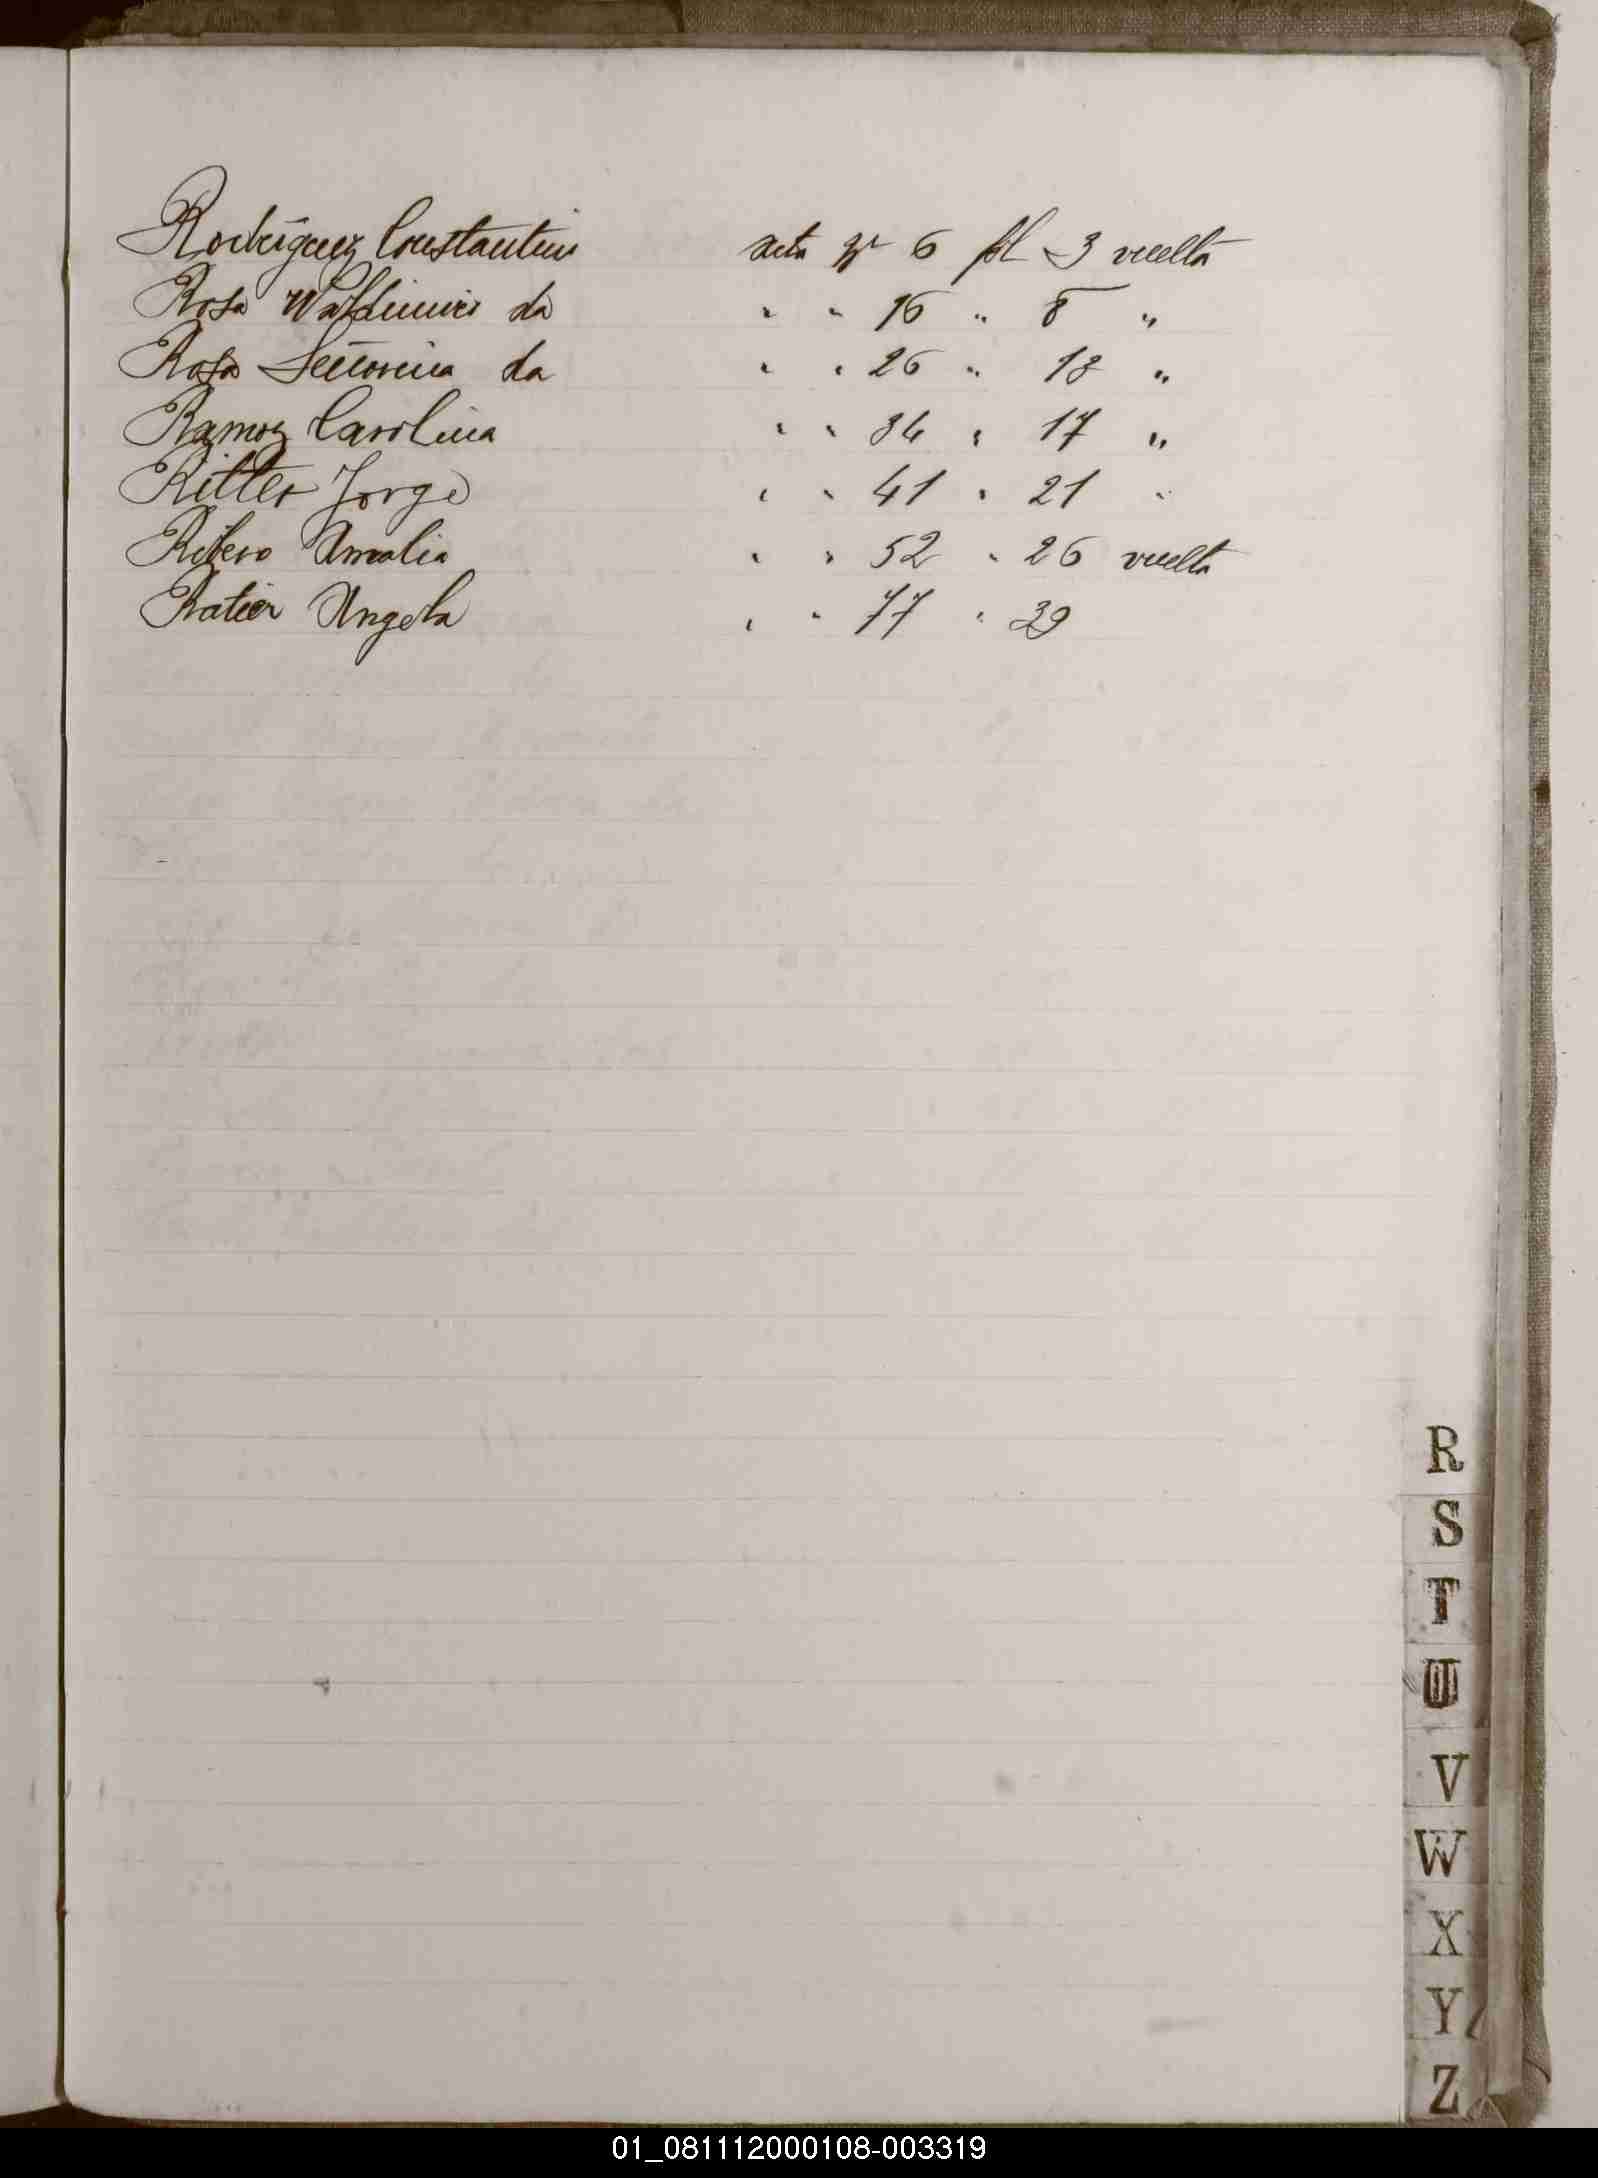 Rodriguez Constantino acta Nº 6 fol 3 vuelta
Rosa Waldimiro da " " 16 " 8 "
Rosa Señorina da " " 26 " 13 "
Ramoz Carolina " " 34 " 17 "
Ritter Jorge " " 41 " 21 "
Ribero Amalia " " 52 " 26 vuelta
Ratier Angela " " 77 " 39
R
S
T
U
V
W
X
Y
Z
01_081112000108-003319